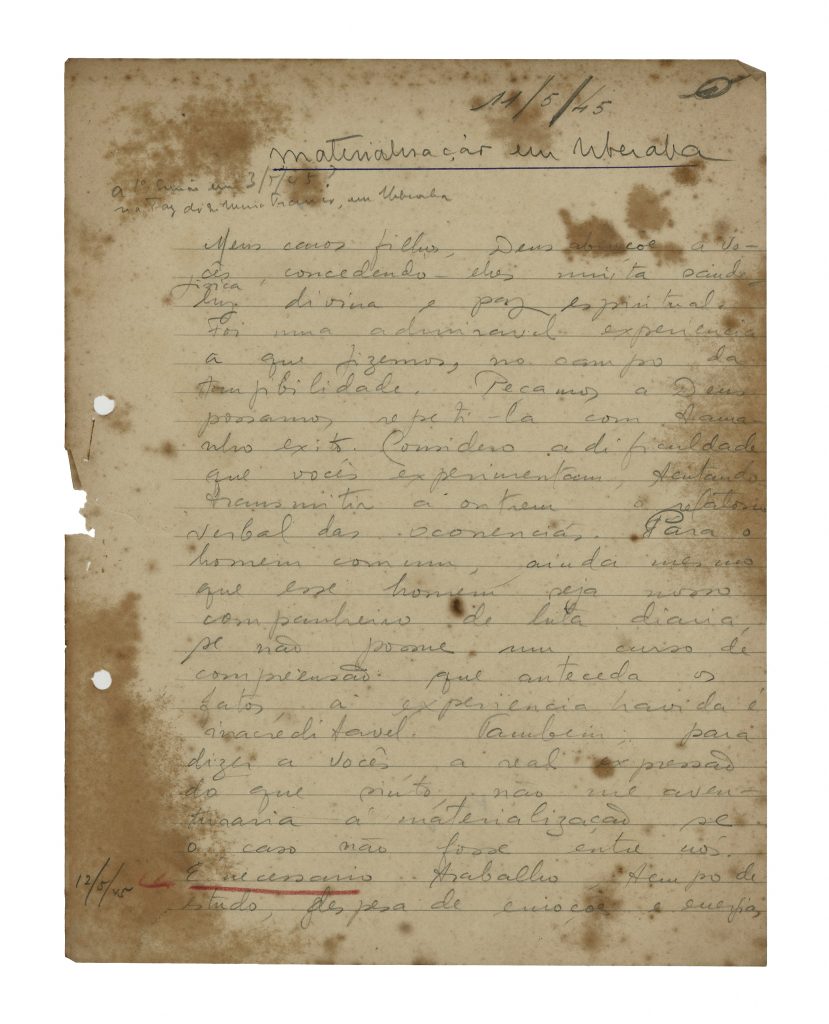 11/5/45
materialização em Uberaba
a 1ª em 3/5/45?
na Paz do, em Uberaba
Meus caros filho, Deus abençoe a vo-
cês, concedendo-lhes muita saude
fisica,
luz divina e paz espiritual.
Foi uma admiravel experiencia
a que fizemos, no campo da
tangibilidade. Peçamos a Deus
possamos repeti-la com tama-
nho exito. Considero a dificuldade
que vocês experimentam, tentando
transmitir a outrem o relatorio
verbal das ocorrencias. Para o
homem comum, ainda mesmo
que esse homem seja nosso
companheiro de luta diaria,
se não possue um curso de
compreensão que anteceda os
fatos a experiencia havida é
inacreditavel. Tambem, para
dizer a vocês a real expressão
do que sinto não me aven-
turaria á materialização se
o caso não fosse entre nós.
12/5/45
É necessario trabalho, tempo de
estudo, despesa de emoções e energias